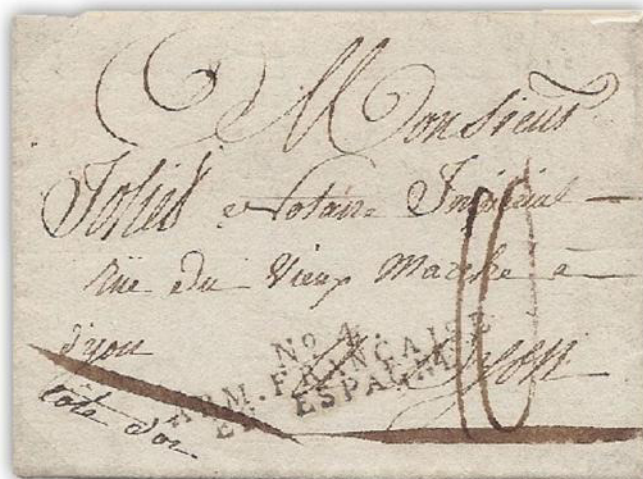 Monsieur
Joliet Notaire Impérial
rüe du Vieux Marché a
dijon
Dijon
Côte d'or
No 4.
ARM. FRANÇAISE
EN ESPAGNE
10